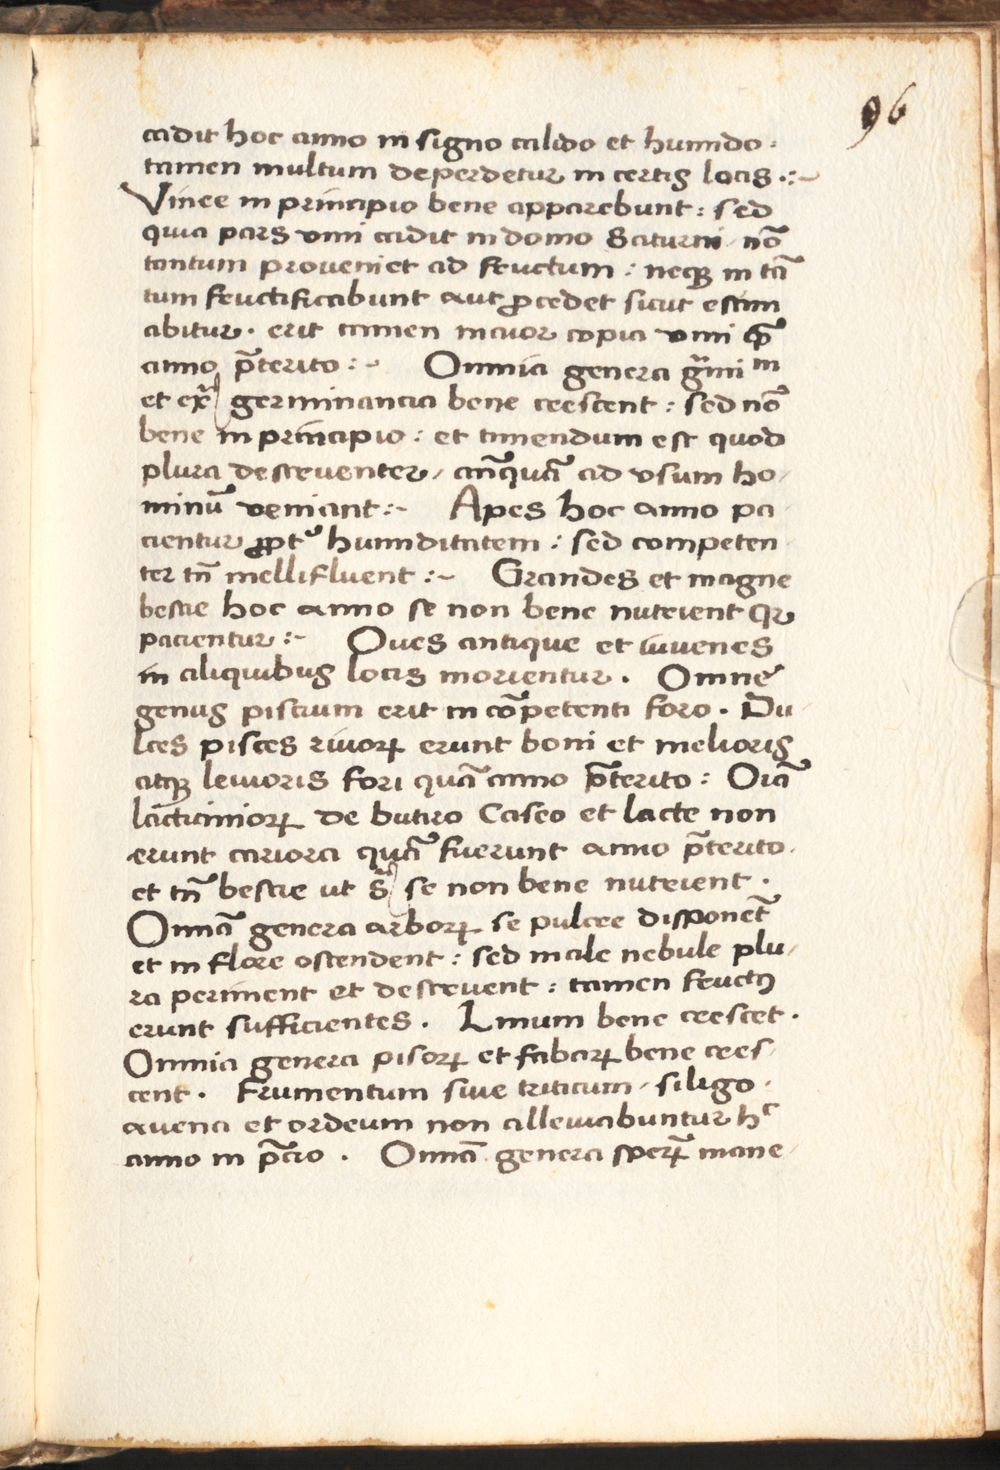 96
cadit hoc anno in signo calido et humido .
tamen multum deperdetur in certis locis .:~
Vinee in principio bene apparebunt : sed
quia pars vini cadit in domo Saturni / nõ
tantum proveniet ad fructum : neqꝫ in tã
tum fructificabunt aut ꝓcedet sicut estim
abitur . erit tamen maior copia vini qᷓ
anno p̃terito :~ Omnia genera gᷓmi m
et exᷓ germinancia bene crescent : sed nõ
bene in principio : et timendum est quod
plura destruentur / anq̃uã ad vsum ho/
minũ veniant :~ Apes hoc anno pa/
cientur ꝓpt᷒ humiditatem : sed competen
ter tñ mellifluent :~ Grandes et magne
bestie hoc anno se non bene nutrient qꝛ
pacientur :~ Oves antique et iuvenes
in aliquibus locis morientur . Omne
genus piscium erit in cõpetenti foro . Du/
lces pisces rivoꝝ erunt boni et melioris
atqꝫ levioris fori quã anno p̃terito : Oĩa
lacticinioꝝ de butiro Caseo et lacte non
erunt cariora quã fuerunt anno p̃terito .
et tñ bestie ut sᷓ se non bene nutrient .
Omĩa genera arboꝝ se pulcre disponẽt
et in flore ostendent : sed male nebule plu/
ra periment et destruent : tamen fructꝰ
erunt sufficientes . Linum bene crescet .
Omnia genera pisoꝝ et fabaꝝ bene cres/
cent . Frumentum sive triticum / siligo .
avena et ordeum non alleviabuntur hᶜ
anno in p̃cio . Omĩa genera speꝝ mane/